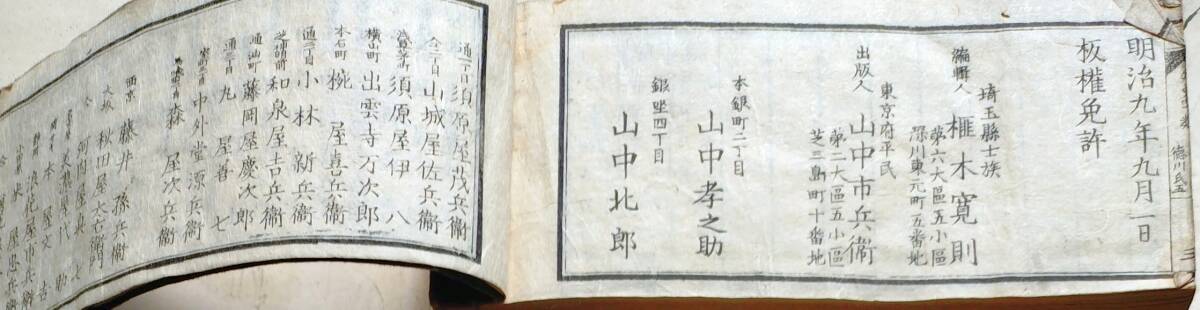 明治九年九月一日
板權免許
埼玉縣士族
編輯人 榧木寛則
第六大區五小區
深川東元町五番地
東京府平民
出版人 山中市兵衞
第二大區五小區
芝三島町十番地
本銀町二丁目
山中孝之助
銀坐四丁目
山中北郎
通一丁目 須原屋茂兵衞
仝二丁目 山城屋佐兵衞
須原屋伊八
横山町 出雲寺万次郎
本石町 椀屋喜兵衞
通三丁目 小林新兵衞
芝神明町 和泉屋吉兵衞
通油町 藤岡屋慶次郎
通三丁目 丸屋善七
中外堂源兵衞
森屋次兵衞
西京 藤井孫兵衞
大坂 秋田屋太右衞門
仝 河内屋眞七
美濃屋代助
本屋文吉
静岡 浪花屋市兵衞